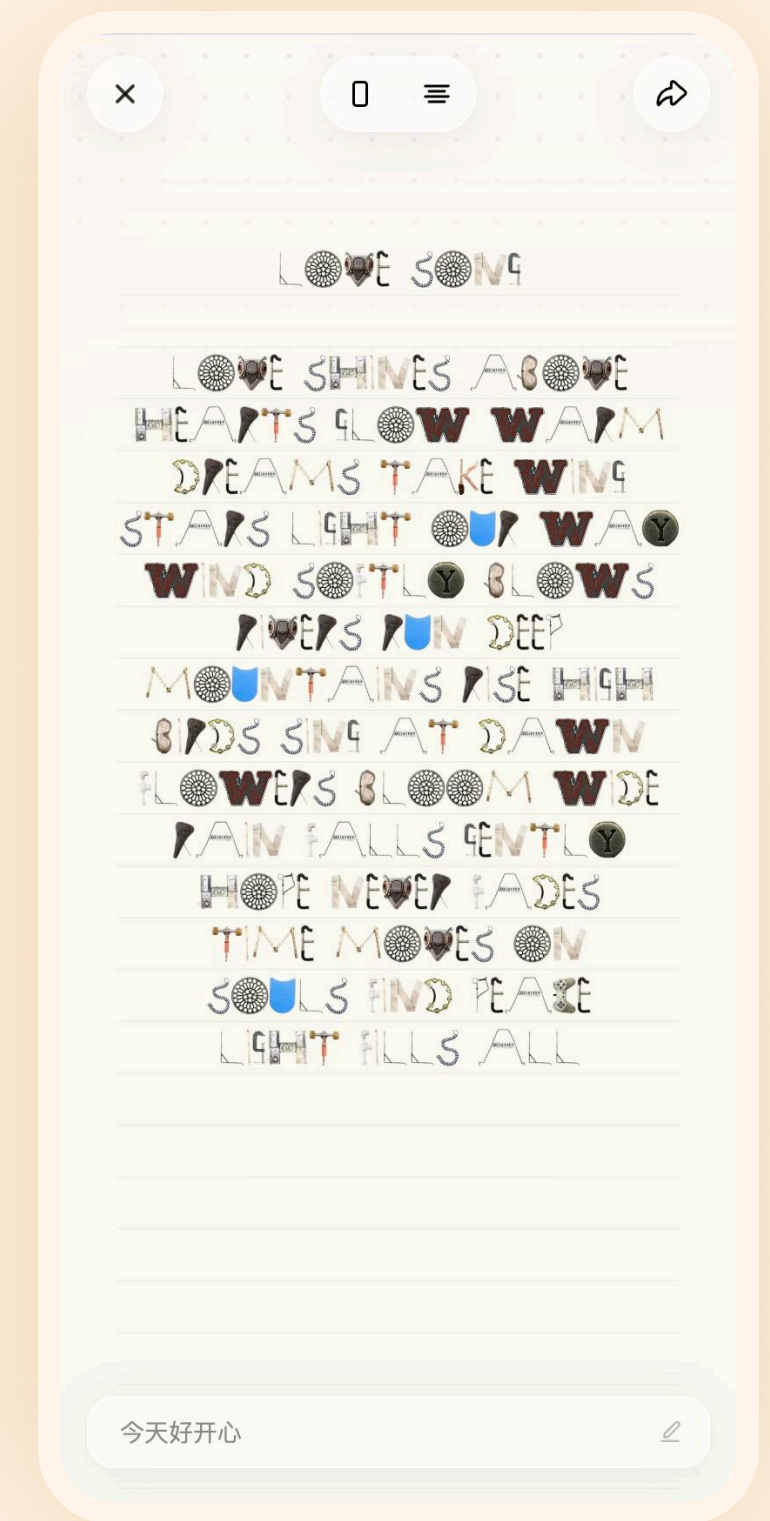 LOVE SONG
LOVE SHINES ABOVE
HEARTS GLOW WARM
DREAMS TAKE WING
STARS LIGHT OUR WAY
WIND SOFTLY BLOWS
RIVERS RUN DEEP
MOUNTAINS RISE HIGH
BIRDS SING AT DAWN
FLOWERS BLOOM WIDE
RAIN FALLS GENTLY
HOPE NEVER FADES
TIME MOVES ON
SOULS FIND PEACE
LIGHT FILLS ALL
今天好开心